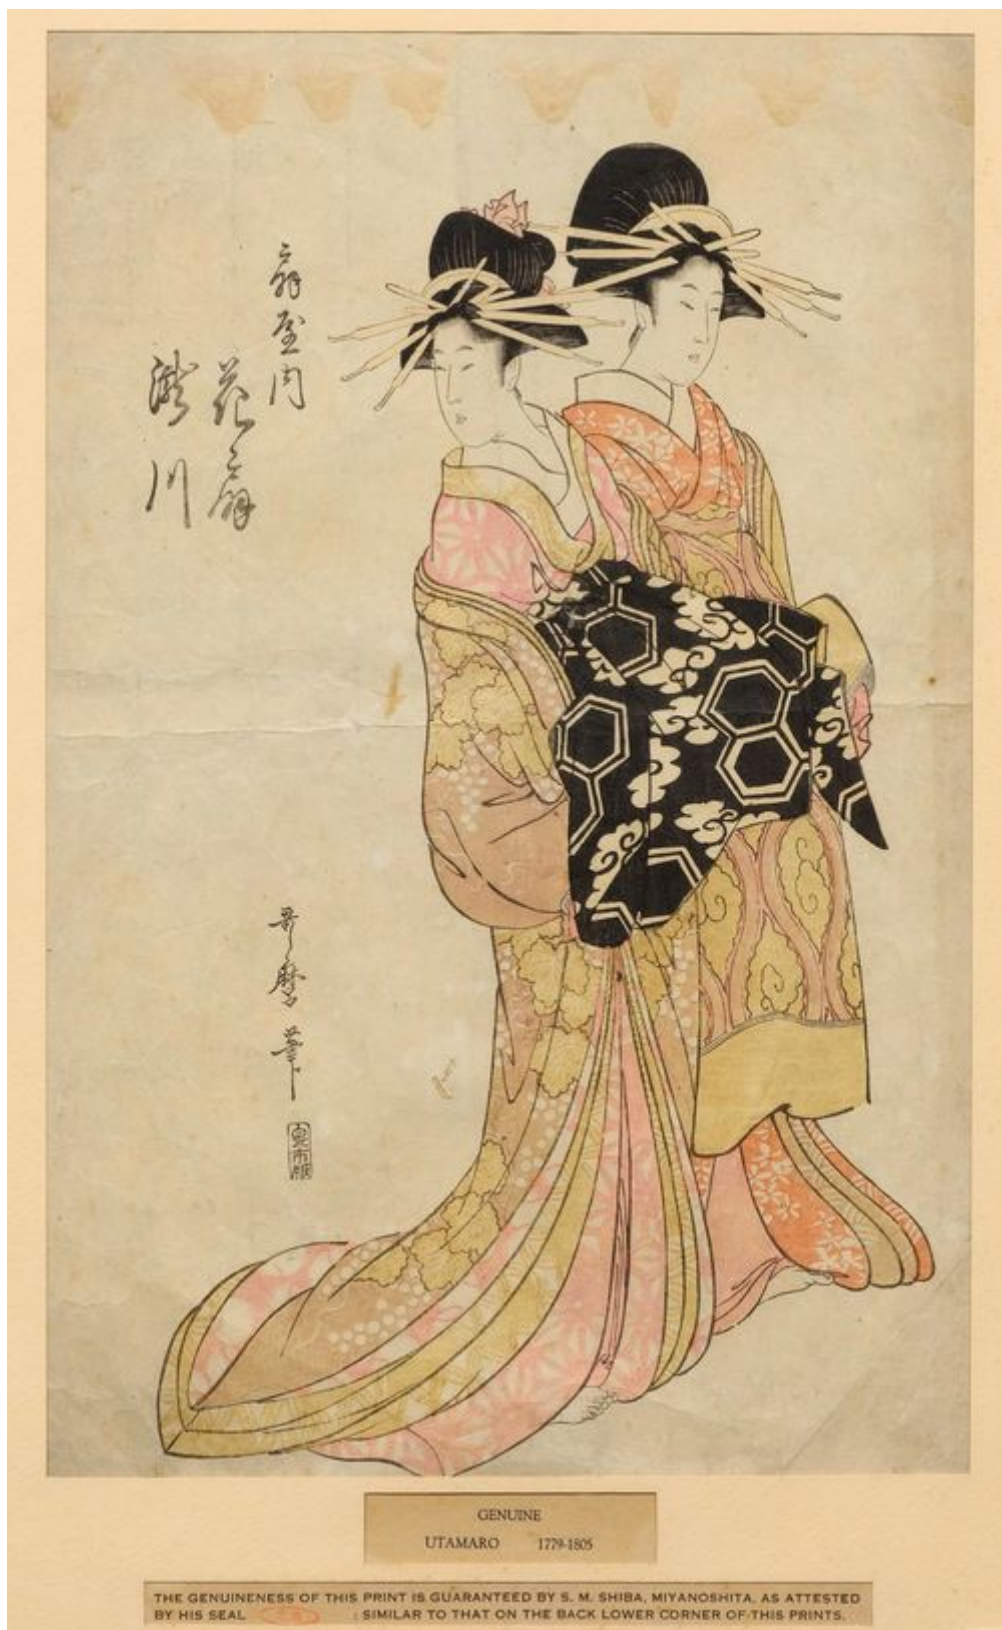 扇屋内
花扇
滝川
哥麿筆
GENUINE
UTAMARO 1779-1805
THE GENUINENESS OF THIS PRINT IS GUARANTEED BY S. M. SHIBA, MIYANOSHITA, AS ATTESTED
BY HIS SEAL : SIMILAR TO THAT ON THE BACK LOWER CORNER OF THIS PRINTS.